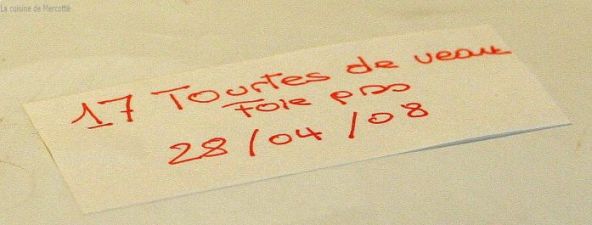 La cuisine de Mercotte
17 Tourtes de veau
Foie
28/04/08